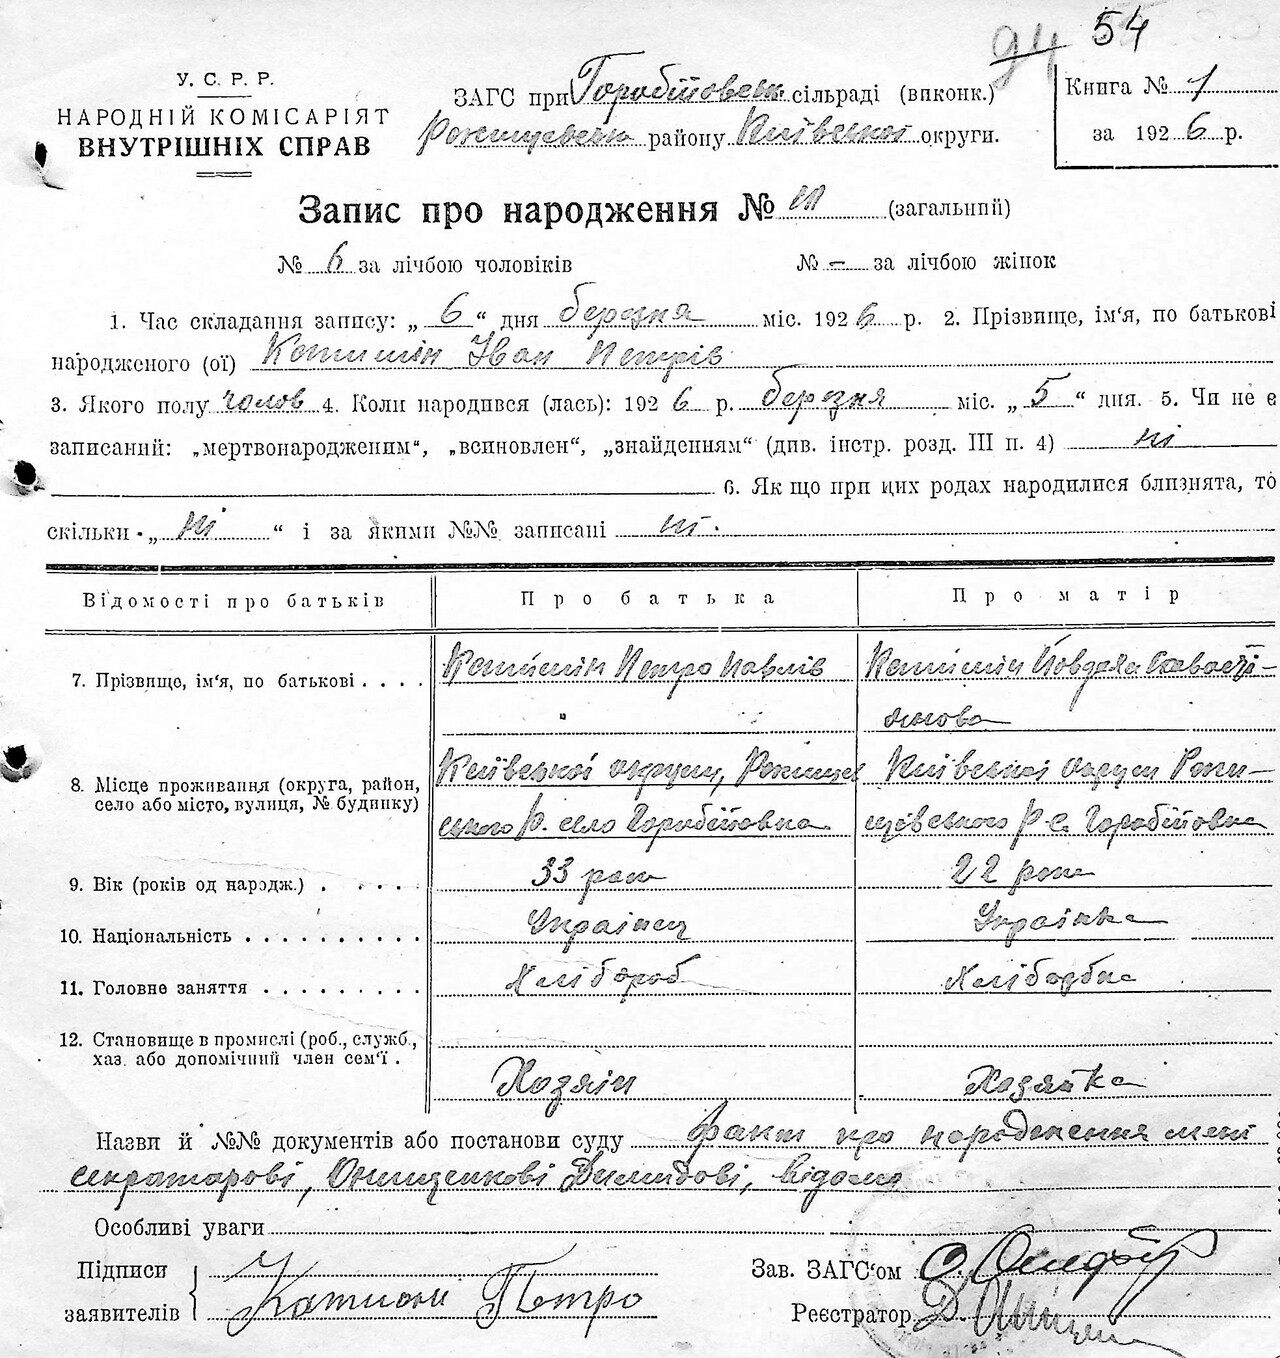 94 54
У. С. Р. Р.
НАРОДНІЙ КОМІСАРІЯТ
ВНУТРІШНІХ СПРАВ
ЗАГС при Горобіївськ. сільраді (виконк.)
району Київської округи.
Книга № 1
за 1926 р.
Запис про народження № (загальний)
№ 6 за лічбою чоловіків № – за лічбою жінок
1. Час складання запису: „ 6 “ дня березня міс. 1926 р. 2. Прізвище, ім'я, по батькові
народженого (ої) Іван Петрів
3. Якого полу чолов 4. Коли народився (лась): 1926 р. березня міс. „ 5 “ дня. 5. Чи не є
записаний: „мертвонародженим“, „всиновлен“, „знайденням“ (див. інстр. розд. III п. 4) ні
6. Як що при цих родах народилися близнята, то
скільки „ ні “ і за якими №№ записані ні.
Відомості про батьків Про батька Про матір
7. Прізвище, ім'я, по батькові . . . . Петро Павлів
8. Місце проживання (округа, район, Київської округи, Київської округи
село або місто, вулиця, № будинку) ського Р. село Горобіївка Р с. Горобіївка
9. Вік (років од народж.) . . . . . 33 рок 22 роки
10. Національність . . . . . . . . . . Українец Українка
11. Головне заняття . . . . . . . . . Хлібороб
12. Становище в промислі (роб., служб.,
хаз. або допомічний член сем'ї . Хозяін Хозяйка
Назви й №№ документів або постанови суду факт про народження мені
секратарові, Онищенкові Демидові, відомо
Особливі уваги
Підписи
заявителів Петро
Зав. ЗАГС'ом
Реєстратор